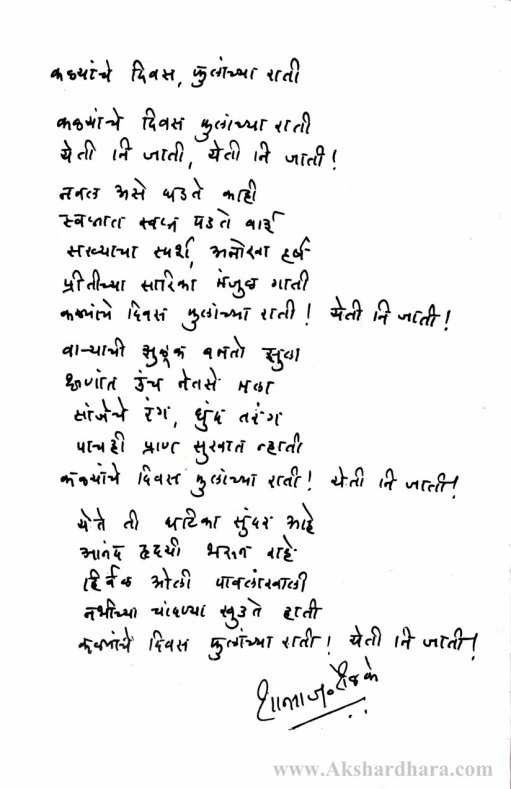 कळ्यांचे दिवस, फुलांच्या राती
कळ्यांचे दिवस फुलांच्या राती
येती नि जाती, येती नि जाती!
नवल असे घडते काही
स्वप्नात स्वप्न पडते बाई
सख्याचा स्पर्श, अनोखा हर्ष
प्रीतीच्या सारिका मंजुळ गाती
कळ्यांचे दिवस फुलांच्या राती! येती नि जाती!
वाऱ्याची झुळूक बनतो झुला
क्षणांत उंच नेतसे मला
सांजेचे रंग, धुंद तरंग
पाचही प्राण सुखात न्हाती
कळ्यांचे दिवस फुलांच्या राती! येती नि जाती!
येते ती घटिका सुंदर आहे
आनंद हृदयी भरून वाहे
हिर्वळ ओली पावलांखाली
नभीच्या चांदण्या खुडते हाती
कळ्यांचे दिवस फुलांच्या राती! येती नि जाती!
शान्ता ज. शेळके
www.Akshardhara.com